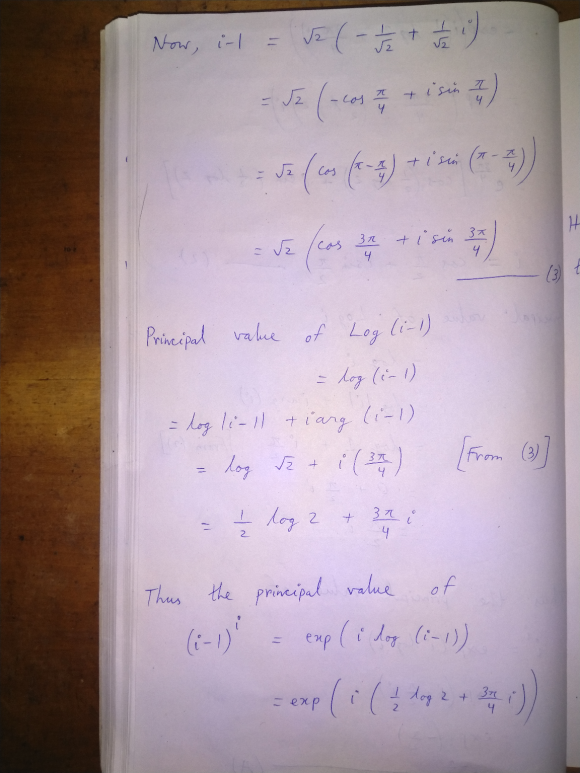 Now, i-1 = √2 ( - 1/√2 + 1/√2 i )
= √2 ( -cos π/4 + i sin π/4 )
= √2 ( cos (π - π/4) + i sin (π - π/4) )
= √2 ( cos 3π/4 + i sin 3π/4 )
——— (3)
Principal value of Log (i-1)
= log (i-1)
= log |i-1| + i arg (i-1)
= log √2 + i ( 3π/4 ) [From (3)]
= 1/2 log 2 + 3π/4 i
Thus the principal value of
(i-1)^i = exp ( i log (i-1) )
= exp ( i ( 1/2 log 2 + 3π/4 i ) )